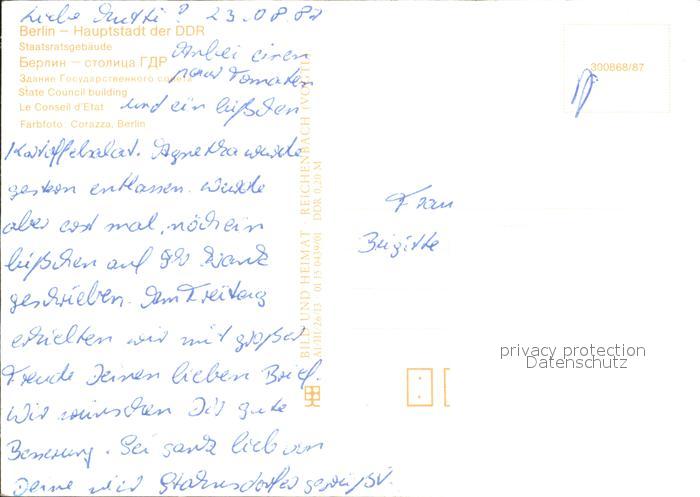 Liebe Mutti! 23.08.87
Berlin – Hauptstadt der DDR
Staatsratsgebäude
Берлин — столица ГДР
Здание Государственного совета
State Council building
Le Conseil d'Etat
Farbfoto: Corazza, Berlin
Anbei einen
paar Tomaten
und ein bißchen
Kartoffelsalat. Agnetha wurde
gestern entlassen. wurde
aber erst mal, noch ein
bißchen auf
geschrieben. Am Freitag
erhielten wir mit großer
Freude Deinen lieben Brief.
Wir wünschen Dir gute
Besserung. Sei ganz lieb von
Deine
gegrüßt.
BILD UND HEIMAT REICHENBACH (VOGTL)
A1/III/26/13 01 15 0439/01 DDR 0,20 M
300868/87
Frau
Brigitte
privacy protection
Datenschutz